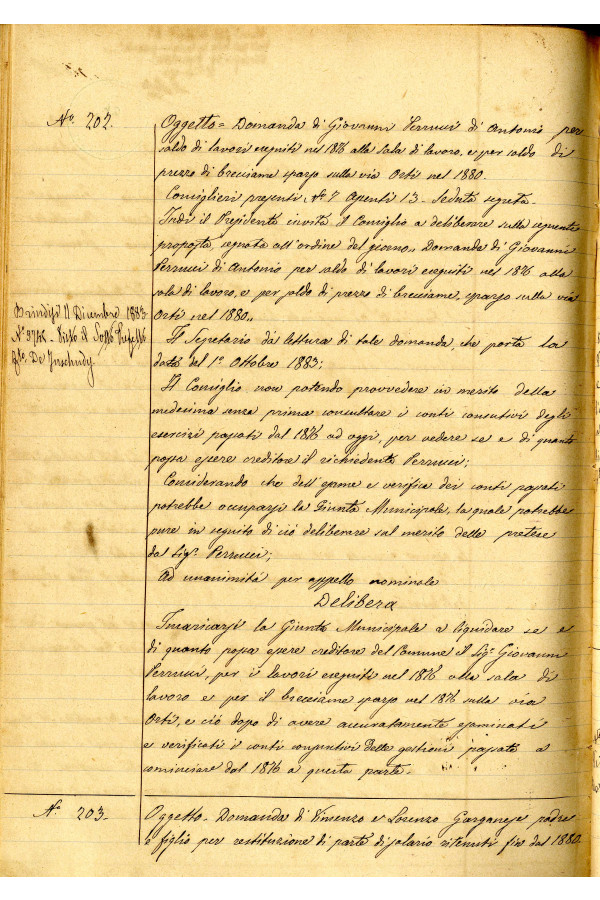 N.° 202.
Oggetto = Domanda di Giovanni Perrucci di Antonio per
saldo di lavori eseguiti nel 1876 alla sala di lavoro, e per saldo di
prezzo di brecciame sparso sulla via Orti nel 1880.
Consiglieri presenti N.° 7 Assenti 13 - Seduta segreta -
Indi il Presidente invita il Consiglio a deliberare sulla seguente
proposta, segnata all'ordine del giorno „ Domanda di Giovanni
Perrucci di Antonio per saldo di lavori eseguiti nel 1876 alla
sala di lavoro, e per saldo di prezzo di brecciame, sparso sulla via
Orti nel 1880 „
Il Segretario dà lettura di tale domanda, che porta la
data del 1.° Ottobre 1883;
Il Consiglio non potendo provvedere in merito della
medesima senza prima consultare i conti consutivi degli
esercizi passati dal 1876 ad oggi, per vedere se e di quanto
possa essere creditore il richiedente Perrucci;
Considerando che dell'esame e verifica dei conti passati
potrebbe occuparsi la Giunta Municipale, la quale potrebbe
pure in seguito di ciò deliberare sul merito delle pretese
del Sig.r Perrucci;
Ad unanimità per appello nominale
Delibera
Incaricarsi la Giunta Municipale a liquidare se e
di quanto possa essere creditore del Comune il Sig.r Giovanni
Perrucci, per i lavori eseguiti nel 1876 alla sala di
lavoro e per il brecciame sparso nel 1876 sulla via
Orti, e ciò dopo di avere accuratamente esaminati
e verificati i conti consuntivi delle gestioni passate a
cominciare dal 1876 a questa parte.
Brindisi 11 Dicembre 1883
N.° 9746 - Visto il Sotto Prefetto
f.to De
N.° 203.
Oggetto - Domanda di Vincenzo e Lorenzo Garganese padre
e figlio per restituzione di parte di salario ritenuti fin dal 1880.